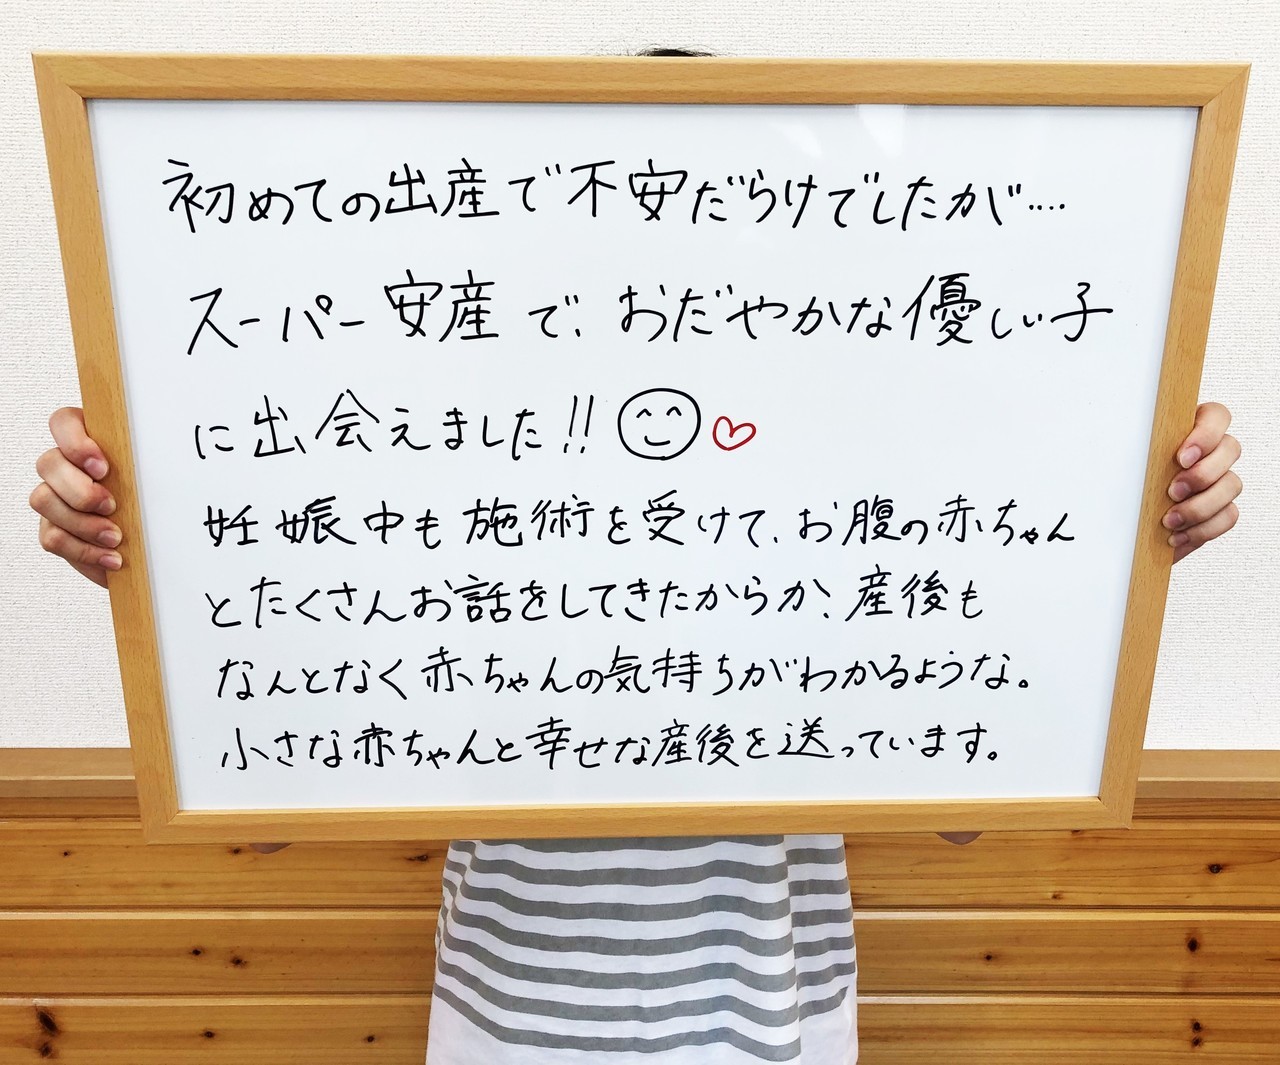 初めての出産で不安だらけでしたが….
スーパー安産で、おだやかな優しい子
に出会えました!!
妊娠中も施術を受けて、お腹の赤ちゃん
とたくさんお話をしてきたからか、産後も
なんとなく赤ちゃんの気持ちがわかるような。
小さな赤ちゃんと幸せな産後を送っています。